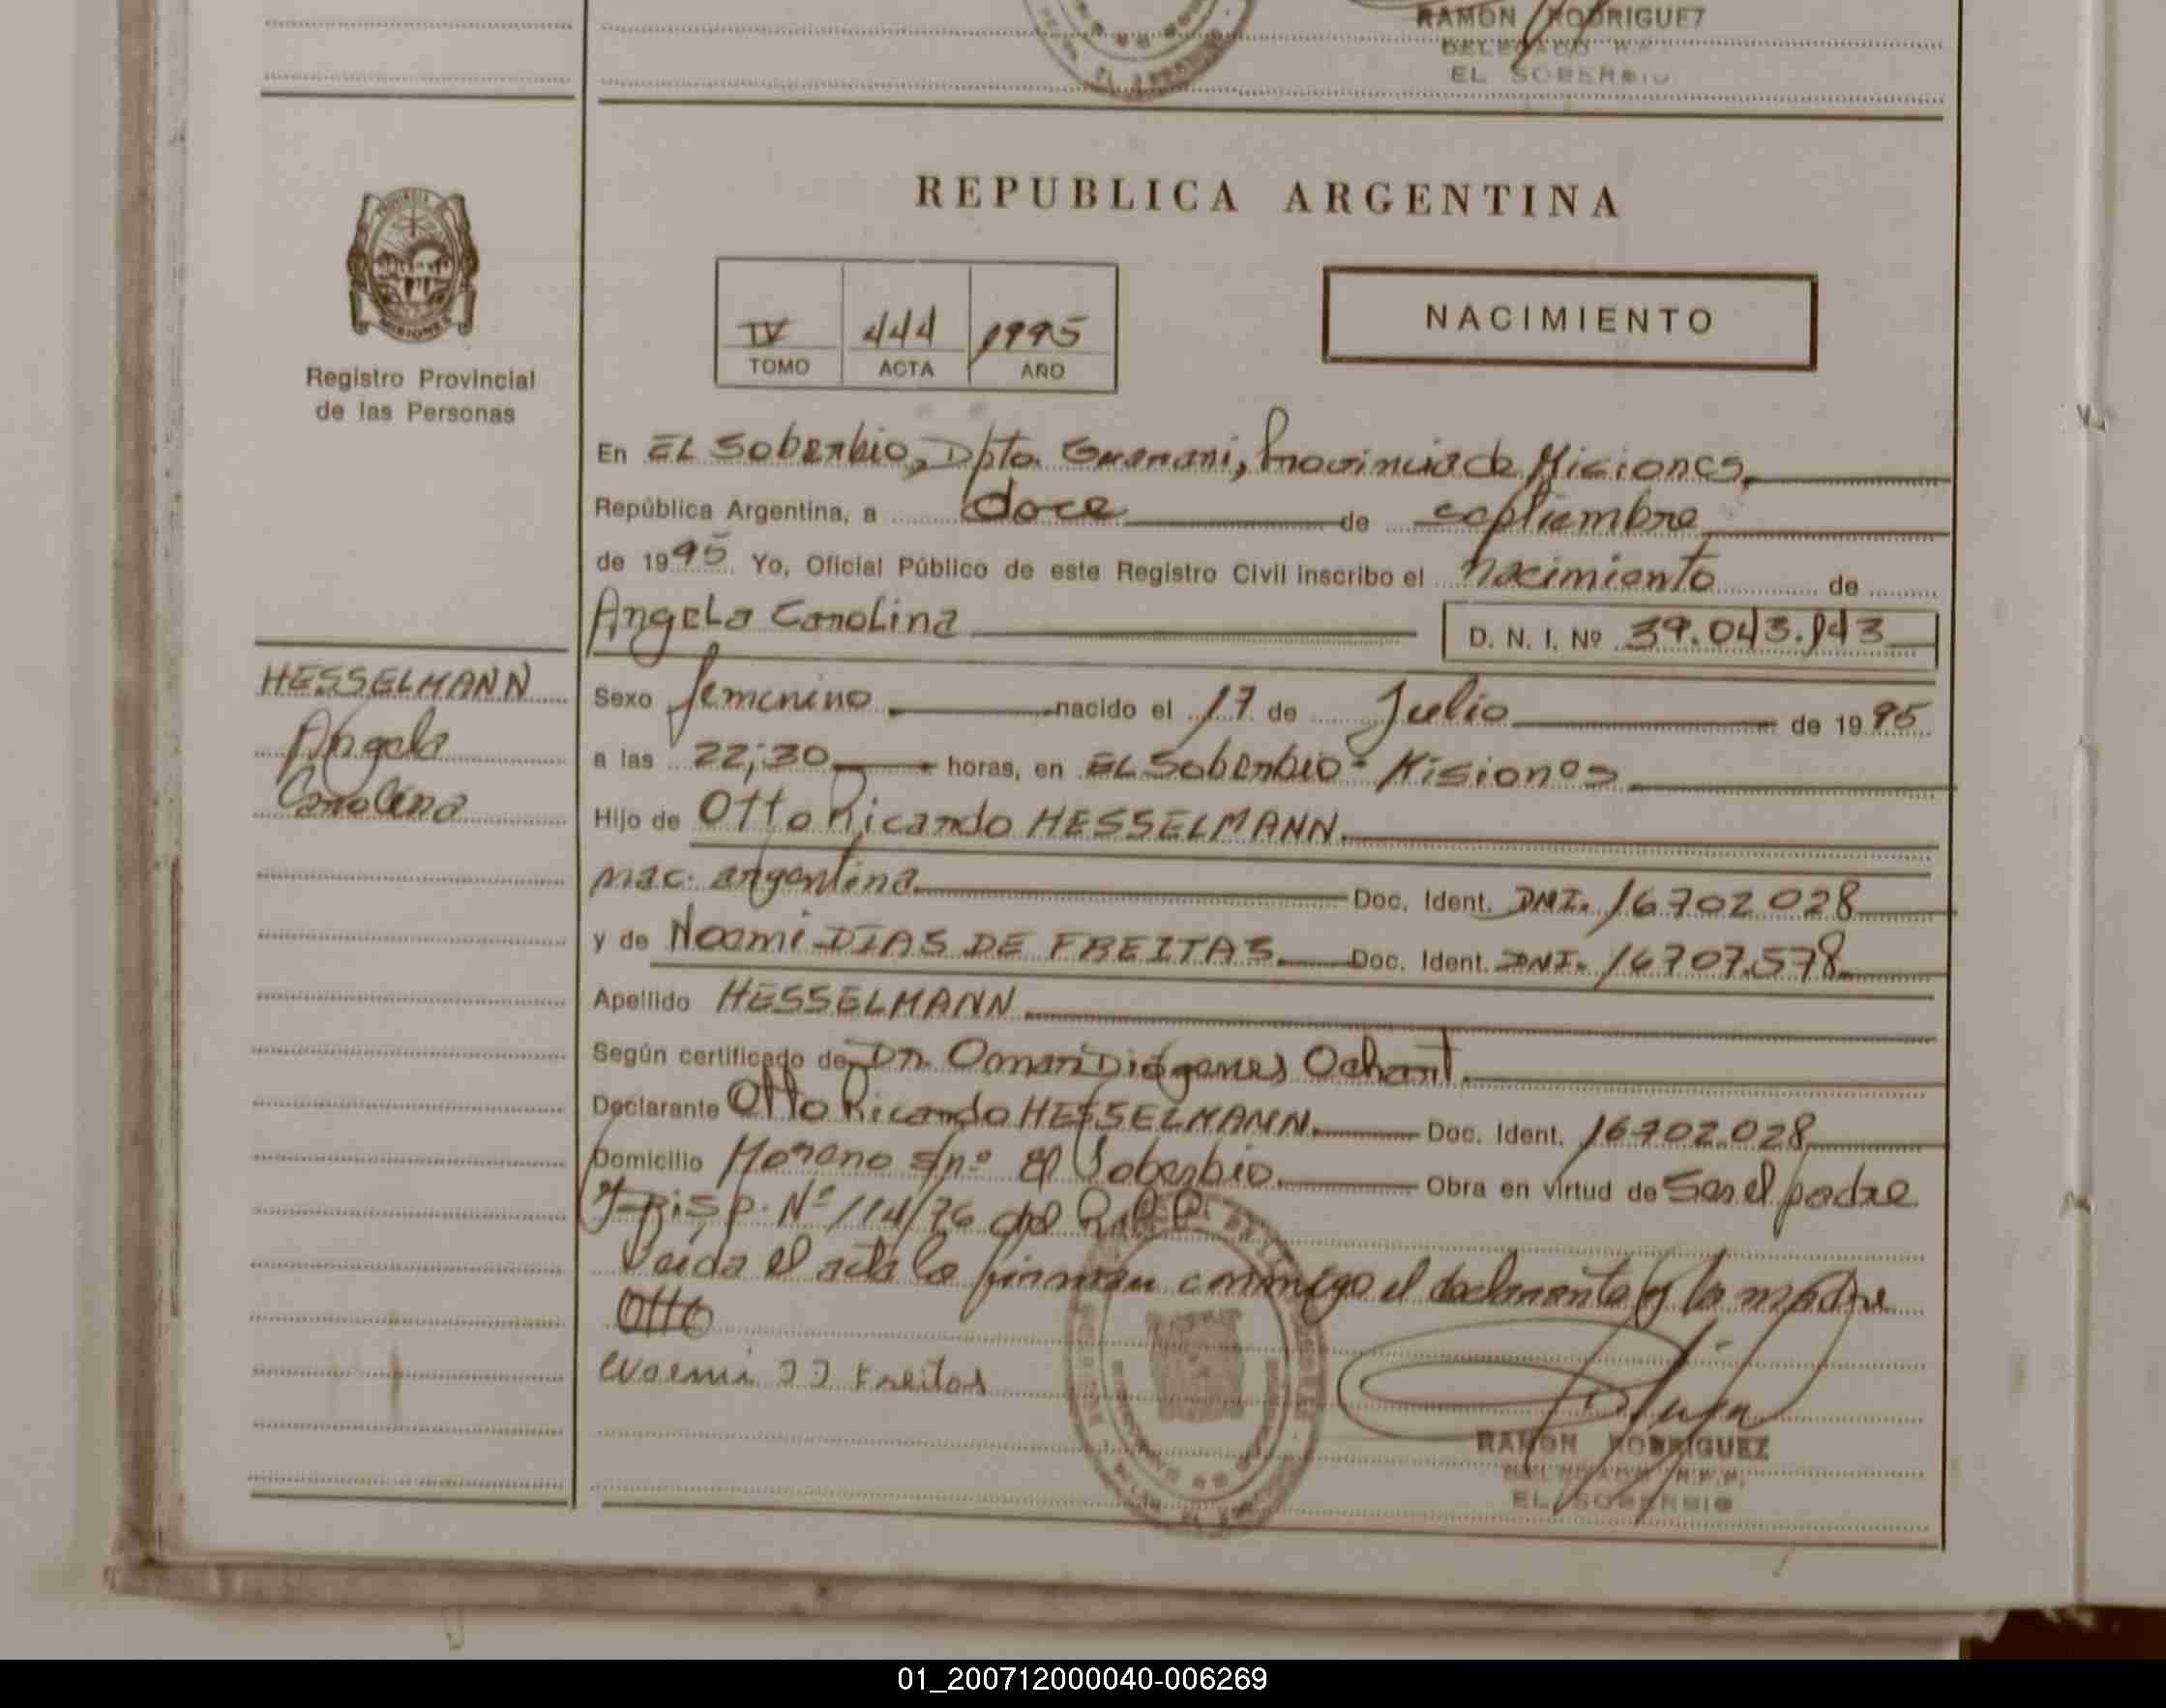 RAMON RODRIGUEZ
DELEGADO
EL SOBERBIO
REPUBLICA ARGENTINA
PROVINCIA
MISIONES
Registro Provincial
de las Personas
IV 444 1995
TOMO ACTA AÑO
NACIMIENTO
En EL Soberbio, Dpto. Guarani, Provincia de Misiones,
República Argentina, a doce de septiembre
de 1995 Yo, Oficial Público de este Registro Civil inscribo el nacimiento de
Angela Carolina D. N. I. Nº 39.043.143
HESSELMANN
Angela
Carolina
Sexo femenino nacido el 17 de Julio de 1995
a las 22;30 horas, en EL Soberbio - Misiones
Hijo de Otto Ricardo HESSELMANN.
nac. argentina Doc. Ident. DNI. 16702028
y de Noemi DIAS DE FREITAS. Doc. Ident. DNI. 16707.578
Apellido HESSELMANN
Según certificado de Dr. Omar Diógenes Ochant.
Declarante Otto Ricardo HESSELMANN. Doc. Ident. 16702.028
Domicilio Moreno s/nº El Soberbio. Obra en virtud de Ser el padre
y Disp. Nº 114/76 del R.P.P.
Leida el acta la firman conmigo el declarante y la madre
Otto
Freitas
RAMON RODRIGUEZ
DELEGADO R.P.P.
EL SOBERBIO
01_200712000040-006269